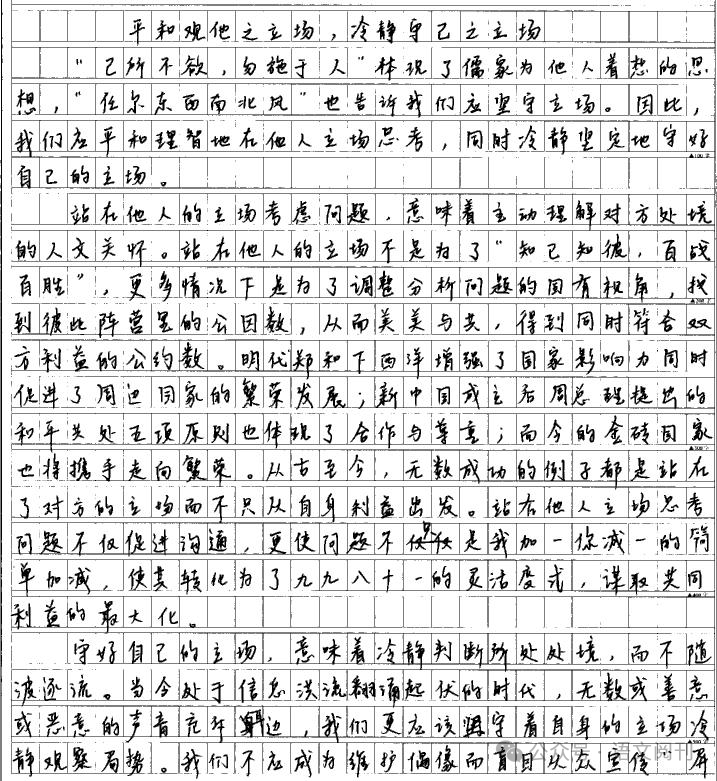 平和观他之立场，冷静守己之立场
“己所不欲，勿施于人”体现了儒家为他人着想的思
想，“任尔东西南北风”也告诉我们应坚守立场。因此，
我们应平和理智地在他人立场思考，同时冷静坚定地守好
▲100字
自己的立场。
站在他人的立场考虑问题，意味着主动理解对方处境
的人文关怀。站在他人的立场不是为了“知己知彼，百战
百胜”，更多情况下是为了调整分析问题的固有视角，找
▲200字
到彼此阵营里的公因数，从而美美与共，得到同时符合双
方利益的公约数。明代郑和下西洋增强了国家影响力同时
促进了周边国家的繁荣发展；新中国成立后周总理提出的
和平共处五项原则也体现了合作与尊重；而今的金砖国家
▲300字
也将携手走向繁荣。从古至今，无数成功的例子都是站在
了对方的立场而不只从自身利益出发。站在他人立场思考
问题不仅促进沟通，更使问题不仅仅是我加一你减一的简
单加减，使其转化为了九九八十一的灵活变式，谋取共同
▲400字
利益的最大化。
守好自己的立场，意味着冷静判断所处处境，而不随
波逐流。当今处于信息洪流翻涌起伏的时代，无数或善意
或恶意的声音充斥耳边，我们更应该坚守着自身的立场冷
静观察局势。我们不应成为维护偶像而盲目从众宣传、屏
公众号·语文阅刊